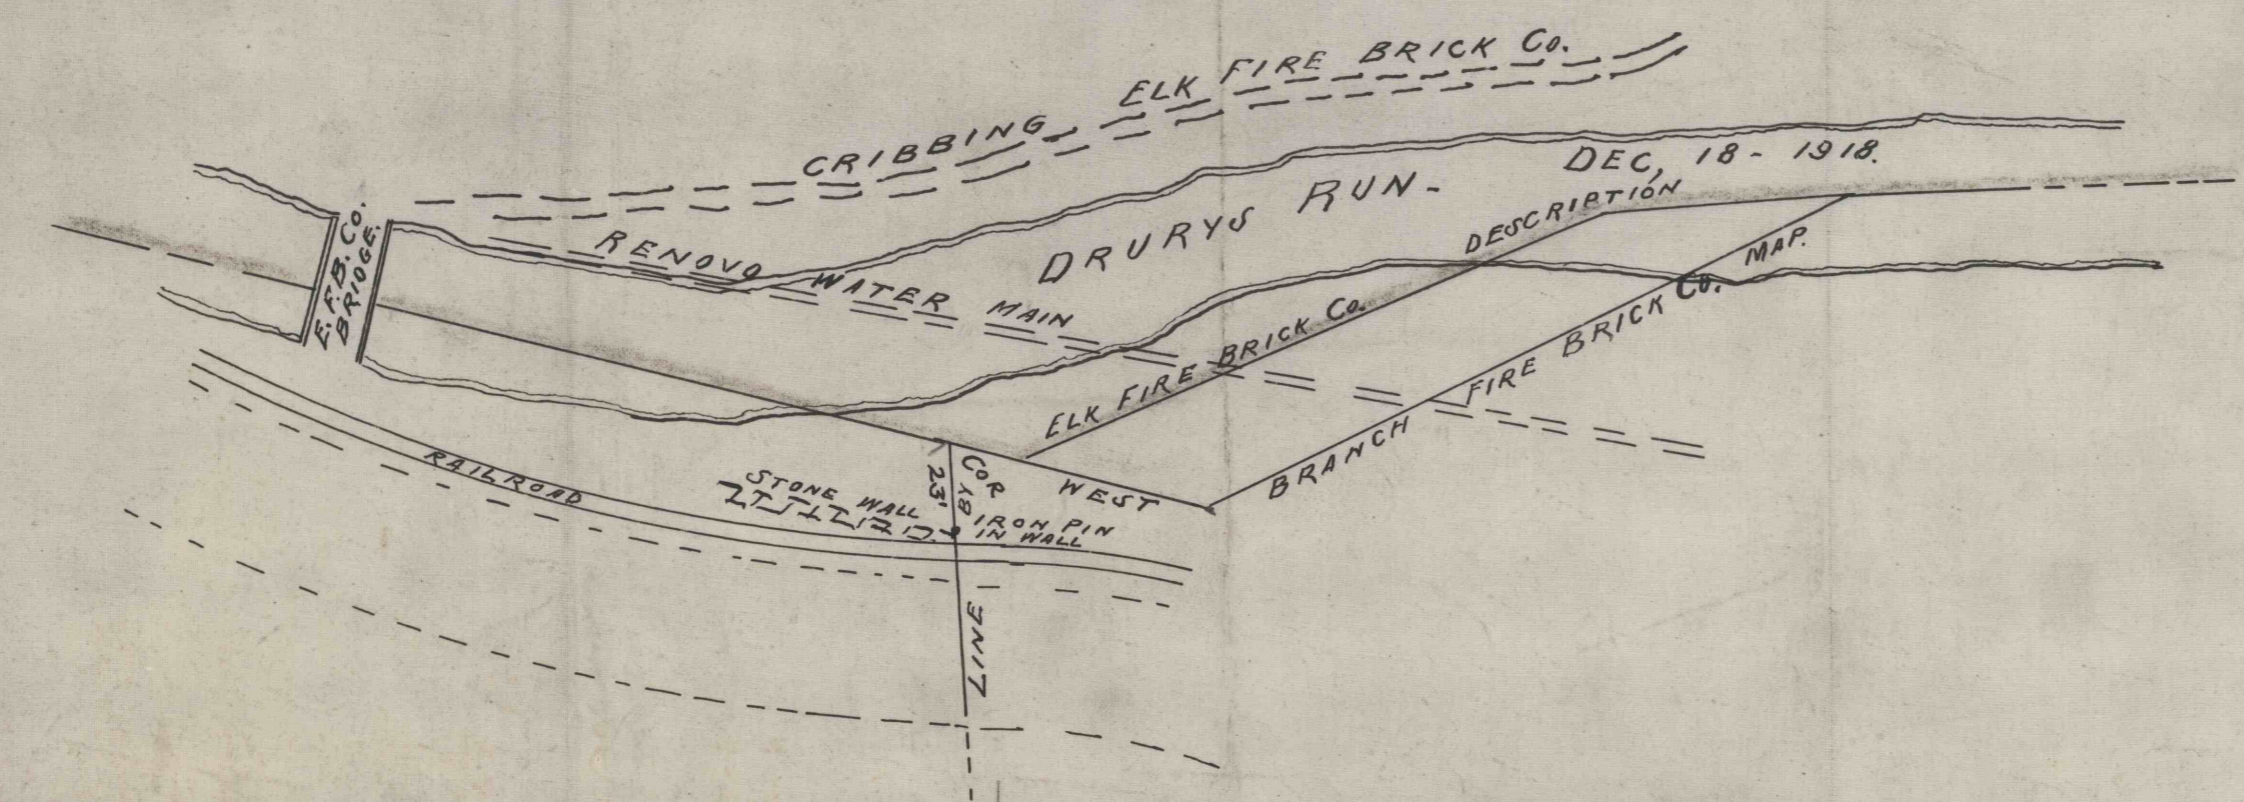 CRIBBING ELK FIRE BRICK Co.
DEC, 18 - 1918.
DRURYS RUN-
E. F. B. CO.
BRIDGE.
RENOVO WATER MAIN
ELK FIRE BRICK Co. DESCRIPTION
BRANCH FIRE BRICK Co. MAP.
RAILROAD
STONE WALL
23'
COR
BY
WEST
IRON PIN
IN WALL
LINE